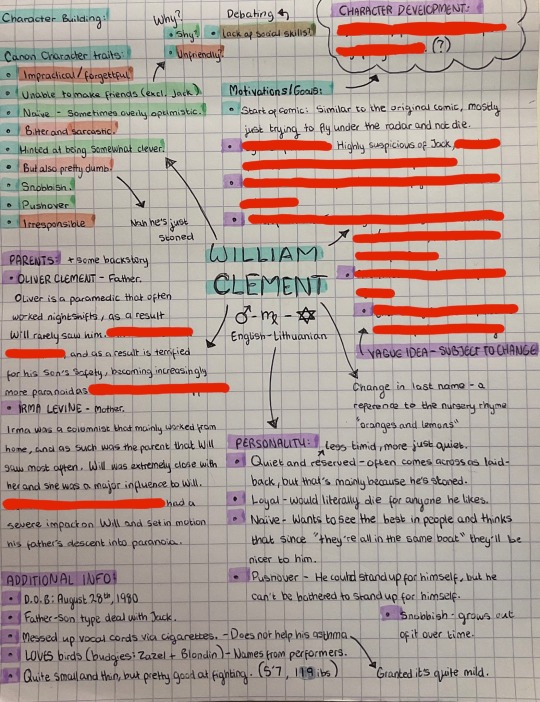 Character Building:
Why?
Debating
Shy?
Lack of social skills?
Unfriendly?
CHARACTER DEVELOPMENT:
(?)
Canon Character traits:
Impractical/forgetful
Unable to make friends (excl. Jack).
Naive - Sometimes overly optimistic.
Bitter and sarcastic.
Hinted at being somewhat clever.
But also pretty dumb.
Snobbish.
Pushover
Irresponsible
Nah he's just
stoned
Motivations/Goals:
Start of comic: Similar to the original comic, mostly
just trying to fly under the radar and not die.
Highly suspicious of Jack,
VAGUE IDEA - SUBJECT TO CHANGE
WILLIAM
CLEMENT
♂ - ♏ - ✡
English-Lithuanian
PARENTS: + some backstory
OLIVER CLEMENT - Father.
Oliver is a paramedic that often
worked nightshifts, as a result
Will rarely saw him.
and as a result is terrified
for his son's safety, becoming increasingly
more paranoid as
IRMA LEVINE - Mother.
Irma was a columnist that mainly worked from
home, and as such was the parent that Will
saw most often. Will was extremely close with
her and she was a major influence to Will.
had a
severe impact on Will and set in motion
his father's descent into paranoia.
Change in last name - a
reference to the nursery rhyme
"oranges and lemons"
PERSONALITY:
Less timid, more just quiet.
Quiet and reserved - often comes across as laid-
back, but that's mainly because he's stoned.
Loyal - would literally die for anyone he likes.
Naive - Wants to see the best in people and thinks
that since "they're all in the same boat" they'll be
nicer to him.
Pushover - He could stand up for himself, but he
can't be bothered to stand up for himself.
Snobbish - grows out
of it over time.
ADDITIONAL INFO:
D.O.B: August 28th, 1980
Father-son type deal with Jack.
Messed up vocal cords via cigarettes. - Does not help his asthma
Granted it's quite mild.
LOVES birds (budgies: Zazel + Blondin) - Names from performers.
Quite small and thin, but pretty good at fighting. (5'7, 119 lbs)